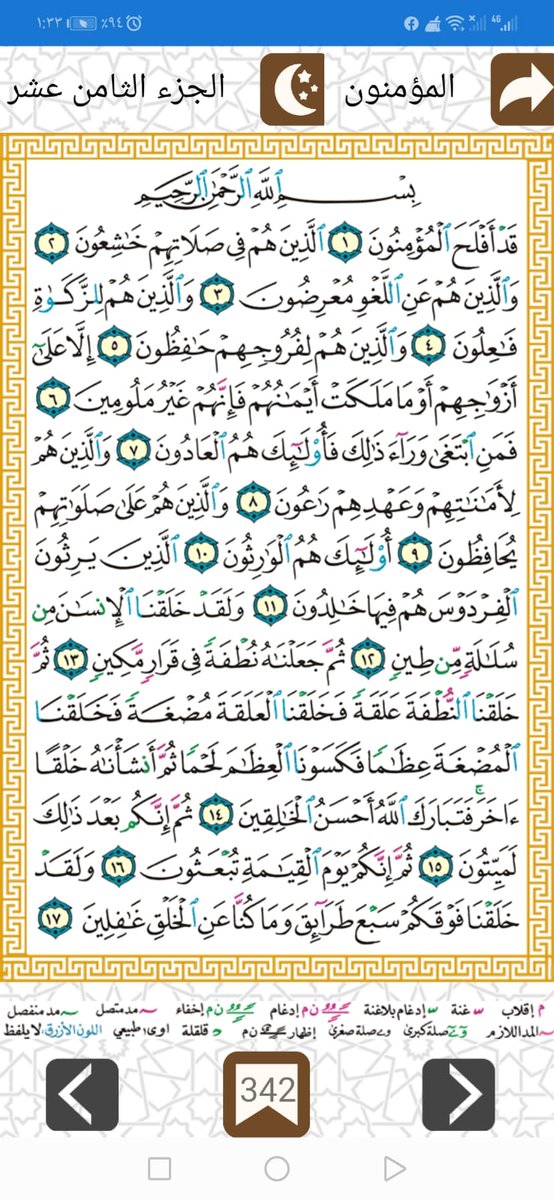 ١:٣٣ ٪٩٤ 4G
المؤمنون الجزء الثامن عشر
بِسْمِ ٱللَّهِ ٱلرَّحْمَٰنِ ٱلرَّحِيمِ
قَدْ أَفْلَحَ ٱلْمُؤْمِنُونَ ١ ٱلَّذِينَ هُمْ فِى صَلَاتِهِمْ خَٰشِعُونَ ٢
وَٱلَّذِينَ هُمْ عَنِ ٱللَّغْوِ مُعْرِضُونَ ٣ وَٱلَّذِينَ هُمْ لِلزَّكَوٰةِ
فَٰعِلُونَ ٤ وَٱلَّذِينَ هُمْ لِفُرُوجِهِمْ حَٰفِظُونَ ٥ إِلَّا عَلَىٰٓ
أَزْوَٰجِهِمْ أَوْ مَا مَلَكَتْ أَيْمَٰنُهُمْ فَإِنَّهُمْ غَيْرُ مَلُومِينَ ٦
فَمَنِ ٱبْتَغَىٰ وَرَآءَ ذَٰلِكَ فَأُو۟لَٰٓئِكَ هُمُ ٱلْعَادُونَ ٧ وَٱلَّذِينَ هُمْ
لِأَمَٰنَٰتِهِمْ وَعَهْدِهِمْ رَٰعُونَ ٨ وَٱلَّذِينَ هُمْ عَلَىٰ صَلَوَٰتِهِمْ
يُحَافِظُونَ ٩ أُو۟لَٰٓئِكَ هُمُ ٱلْوَٰرِثُونَ ١٠ ٱلَّذِينَ يَرِثُونَ
ٱلْفِرْدَوْسَ هُمْ فِيهَا خَٰلِدُونَ ١١ وَلَقَدْ خَلَقْنَا ٱلْإِنسَٰنَ مِن
سُلَٰلَةٍ مِّن طِينٍ ١٢ ثُمَّ جَعَلْنَٰهُ نُطْفَةً فِى قَرَارٍ مَّكِينٍ ١٣ ثُمَّ
خَلَقْنَا ٱلنُّطْفَةَ عَلَقَةً فَخَلَقْنَا ٱلْعَلَقَةَ مُضْغَةً فَخَلَقْنَا
ٱلْمُضْغَةَ عِظَٰمًا فَكَسَوْنَا ٱلْعِظَٰمَ لَحْمًا ثُمَّ أَنشَأْنَٰهُ خَلْقًا
ءَاخَرَ ۚ فَتَبَارَكَ ٱللَّهُ أَحْسَنُ ٱلْخَٰلِقِينَ ١٤ ثُمَّ إِنَّكُم بَعْدَ ذَٰلِكَ
لَمَيِّتُونَ ١٥ ثُمَّ إِنَّكُمْ يَوْمَ ٱلْقِيَٰمَةِ تُبْعَثُونَ ١٦ وَلَقَدْ
خَلَقْنَا فَوْقَكُمْ سَبْعَ طَرَآئِقَ وَمَا كُنَّا عَنِ ٱلْخَلْقِ غَٰفِلِينَ ١٧
م إقلاب غنة إدغام بلا غنة ن م إدغام ن م إخفاء مد متصل مد منفصل
المد اللازم صلة كبرى صلة صغرى إظهار ن م قلقلة اوى: طبيعي اللون الأزرق: لا يلفظ
342